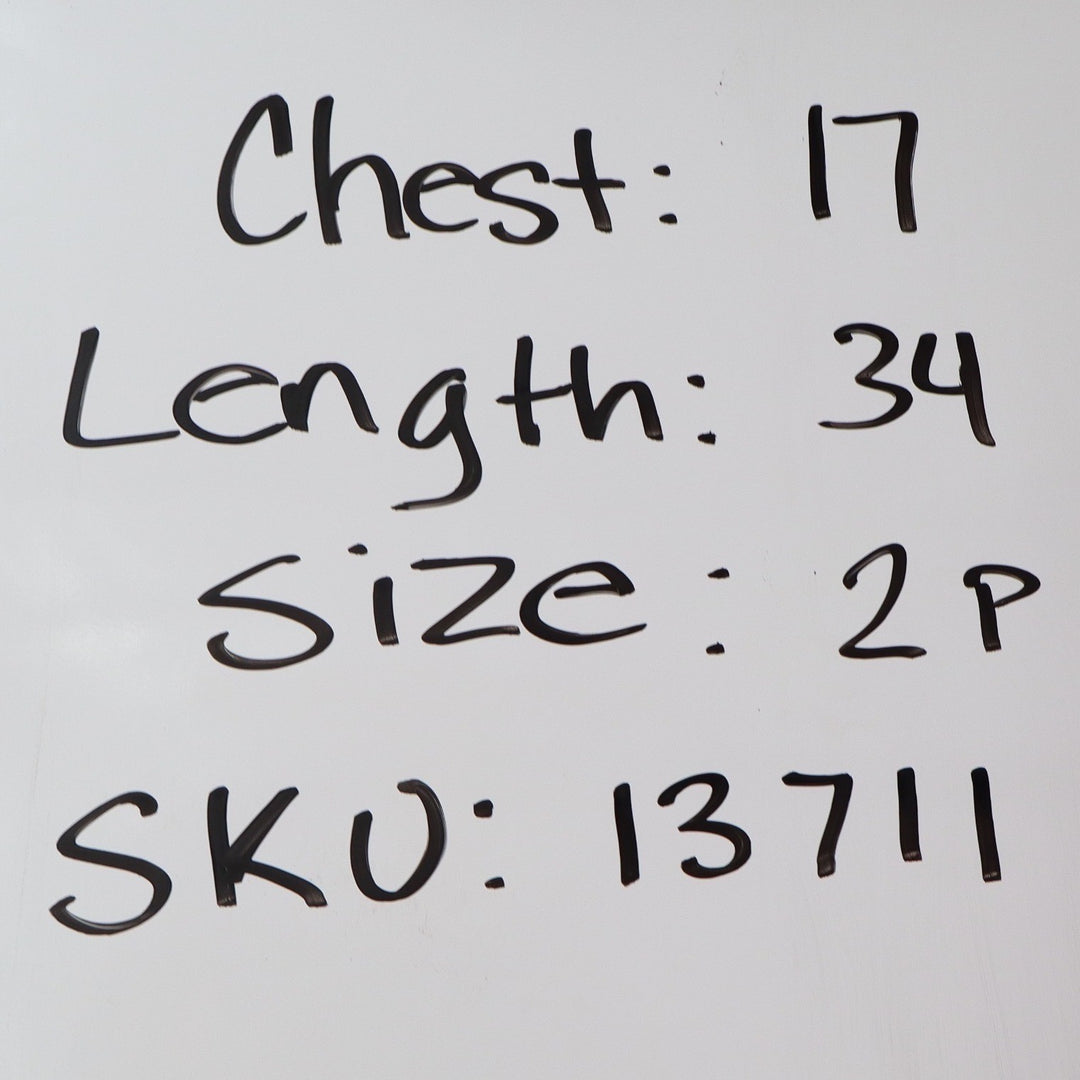 Chest: 17
Length: 34
Size: 2P
SKU: 13711